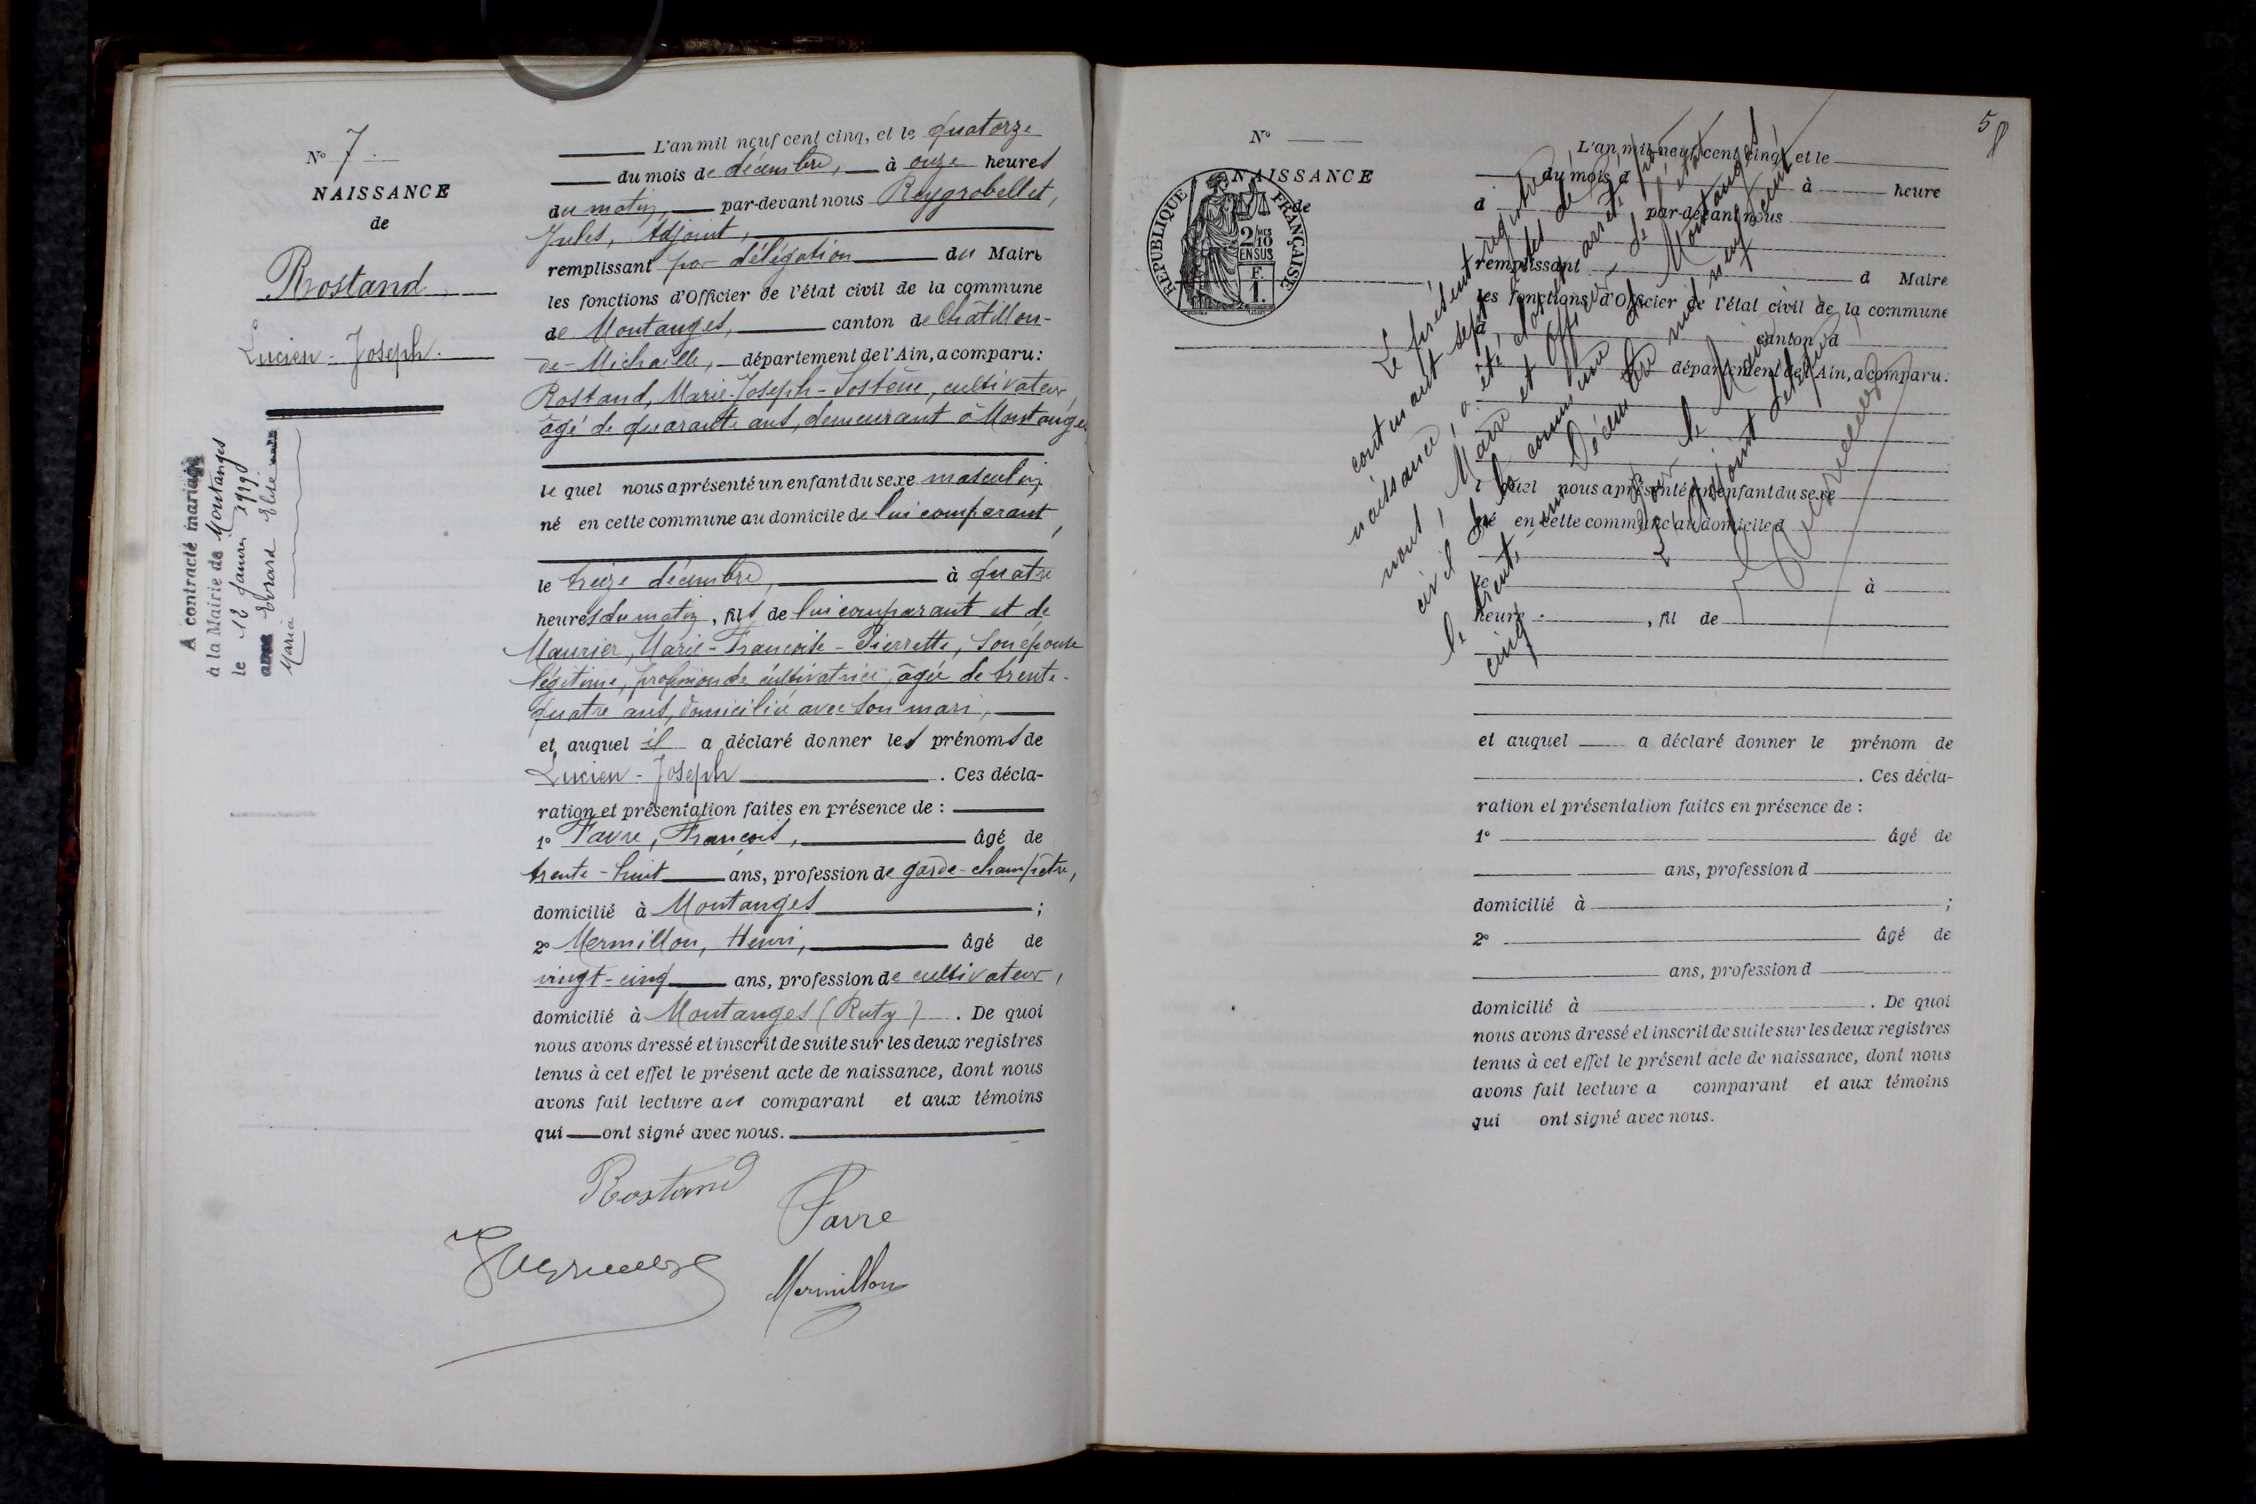 N° 7
NAISSANCE
de
Rostand
Lucien - Joseph.
A contracté mariage
à la Mairie de Montanges
le 12 Janvier 1929
avec Evrard Elise
Maria
L'an mil neuf cent cinq, et le quatorze
du mois de décembre, à onze heures
du matin, par-devant nous Reygrobellet,
Jules, Adjoint,
remplissant par délégation du Maire
les fonctions d'Officier de l'état civil de la commune
de Montanges, canton de Châtillon-
de-Michaille, département de l'Ain, a comparu:
Rostand, Marie-Joseph-Sostène, cultivateur,
âgé de quarante ans, demeurant à Montanges
le quel nous a présenté un enfant du sexe masculin,
né en cette commune au domicile de lui comparant,
le treize décembre, à quatre
heures du matin, fils de lui comparant et de
Maurier, Marie-Françoise-Pierrette, son épouse
légitime, profession de cultivatrice, âgée de trente-
quatre ans, domiciliée avec son mari,
et auquel il a déclaré donner les prénoms de
Lucien - Joseph. Ces décla-
ration et présentation faites en présence de :
1° Favre, François, âgé de
trente-huit ans, profession de garde-champêtre,
domicilié à Montanges ;
2° Mermillon, Henri, âgé de
vingt-cinq ans, profession de cultivateur,
domicilié à Montanges (Ruty). De quoi
nous avons dressé et inscrit de suite sur les deux registres
tenus à cet effet le présent acte de naissance, dont nous
avons fait lecture au comparant et aux témoins
qui ont signé avec nous.
Rostand
Favre
Mermillon
58
N°
NAISSANCE
de
REPUBLIQUE FRANÇAISE
2/10
MES
EN SUS
F.
1.
L'an mil neuf cent cinq, et le
du mois d à heure
d par-devant nous
remplissant d Maire
les fonctions d'Officier de l'état civil de la commune
d canton d
département de l'Ain, a comparu:
le quel nous a présenté un enfant du sexe
né en cette commune au domicile d
le à
heure , fil de
et auquel a déclaré donner le prénom de
. Ces décla-
ration et présentation faites en présence de :
1° âgé de
ans, profession d
domicilié à ;
2° âgé de
ans, profession d
domicilié à . De quoi
nous avons dressé et inscrit de suite sur les deux registres
tenus à cet effet le présent acte de naissance, dont nous
avons fait lecture a comparant et aux témoins
qui ont signé avec nous.
Le présent registre
contenant sept actes de
naissance, a été clos et arrêté par
nous, Maire et Officier de l'état
civil de la commune de Montanges
le trente-un Décembre mil neuf cent
cinq
Pour le Maire
L'Adjoint délégué,